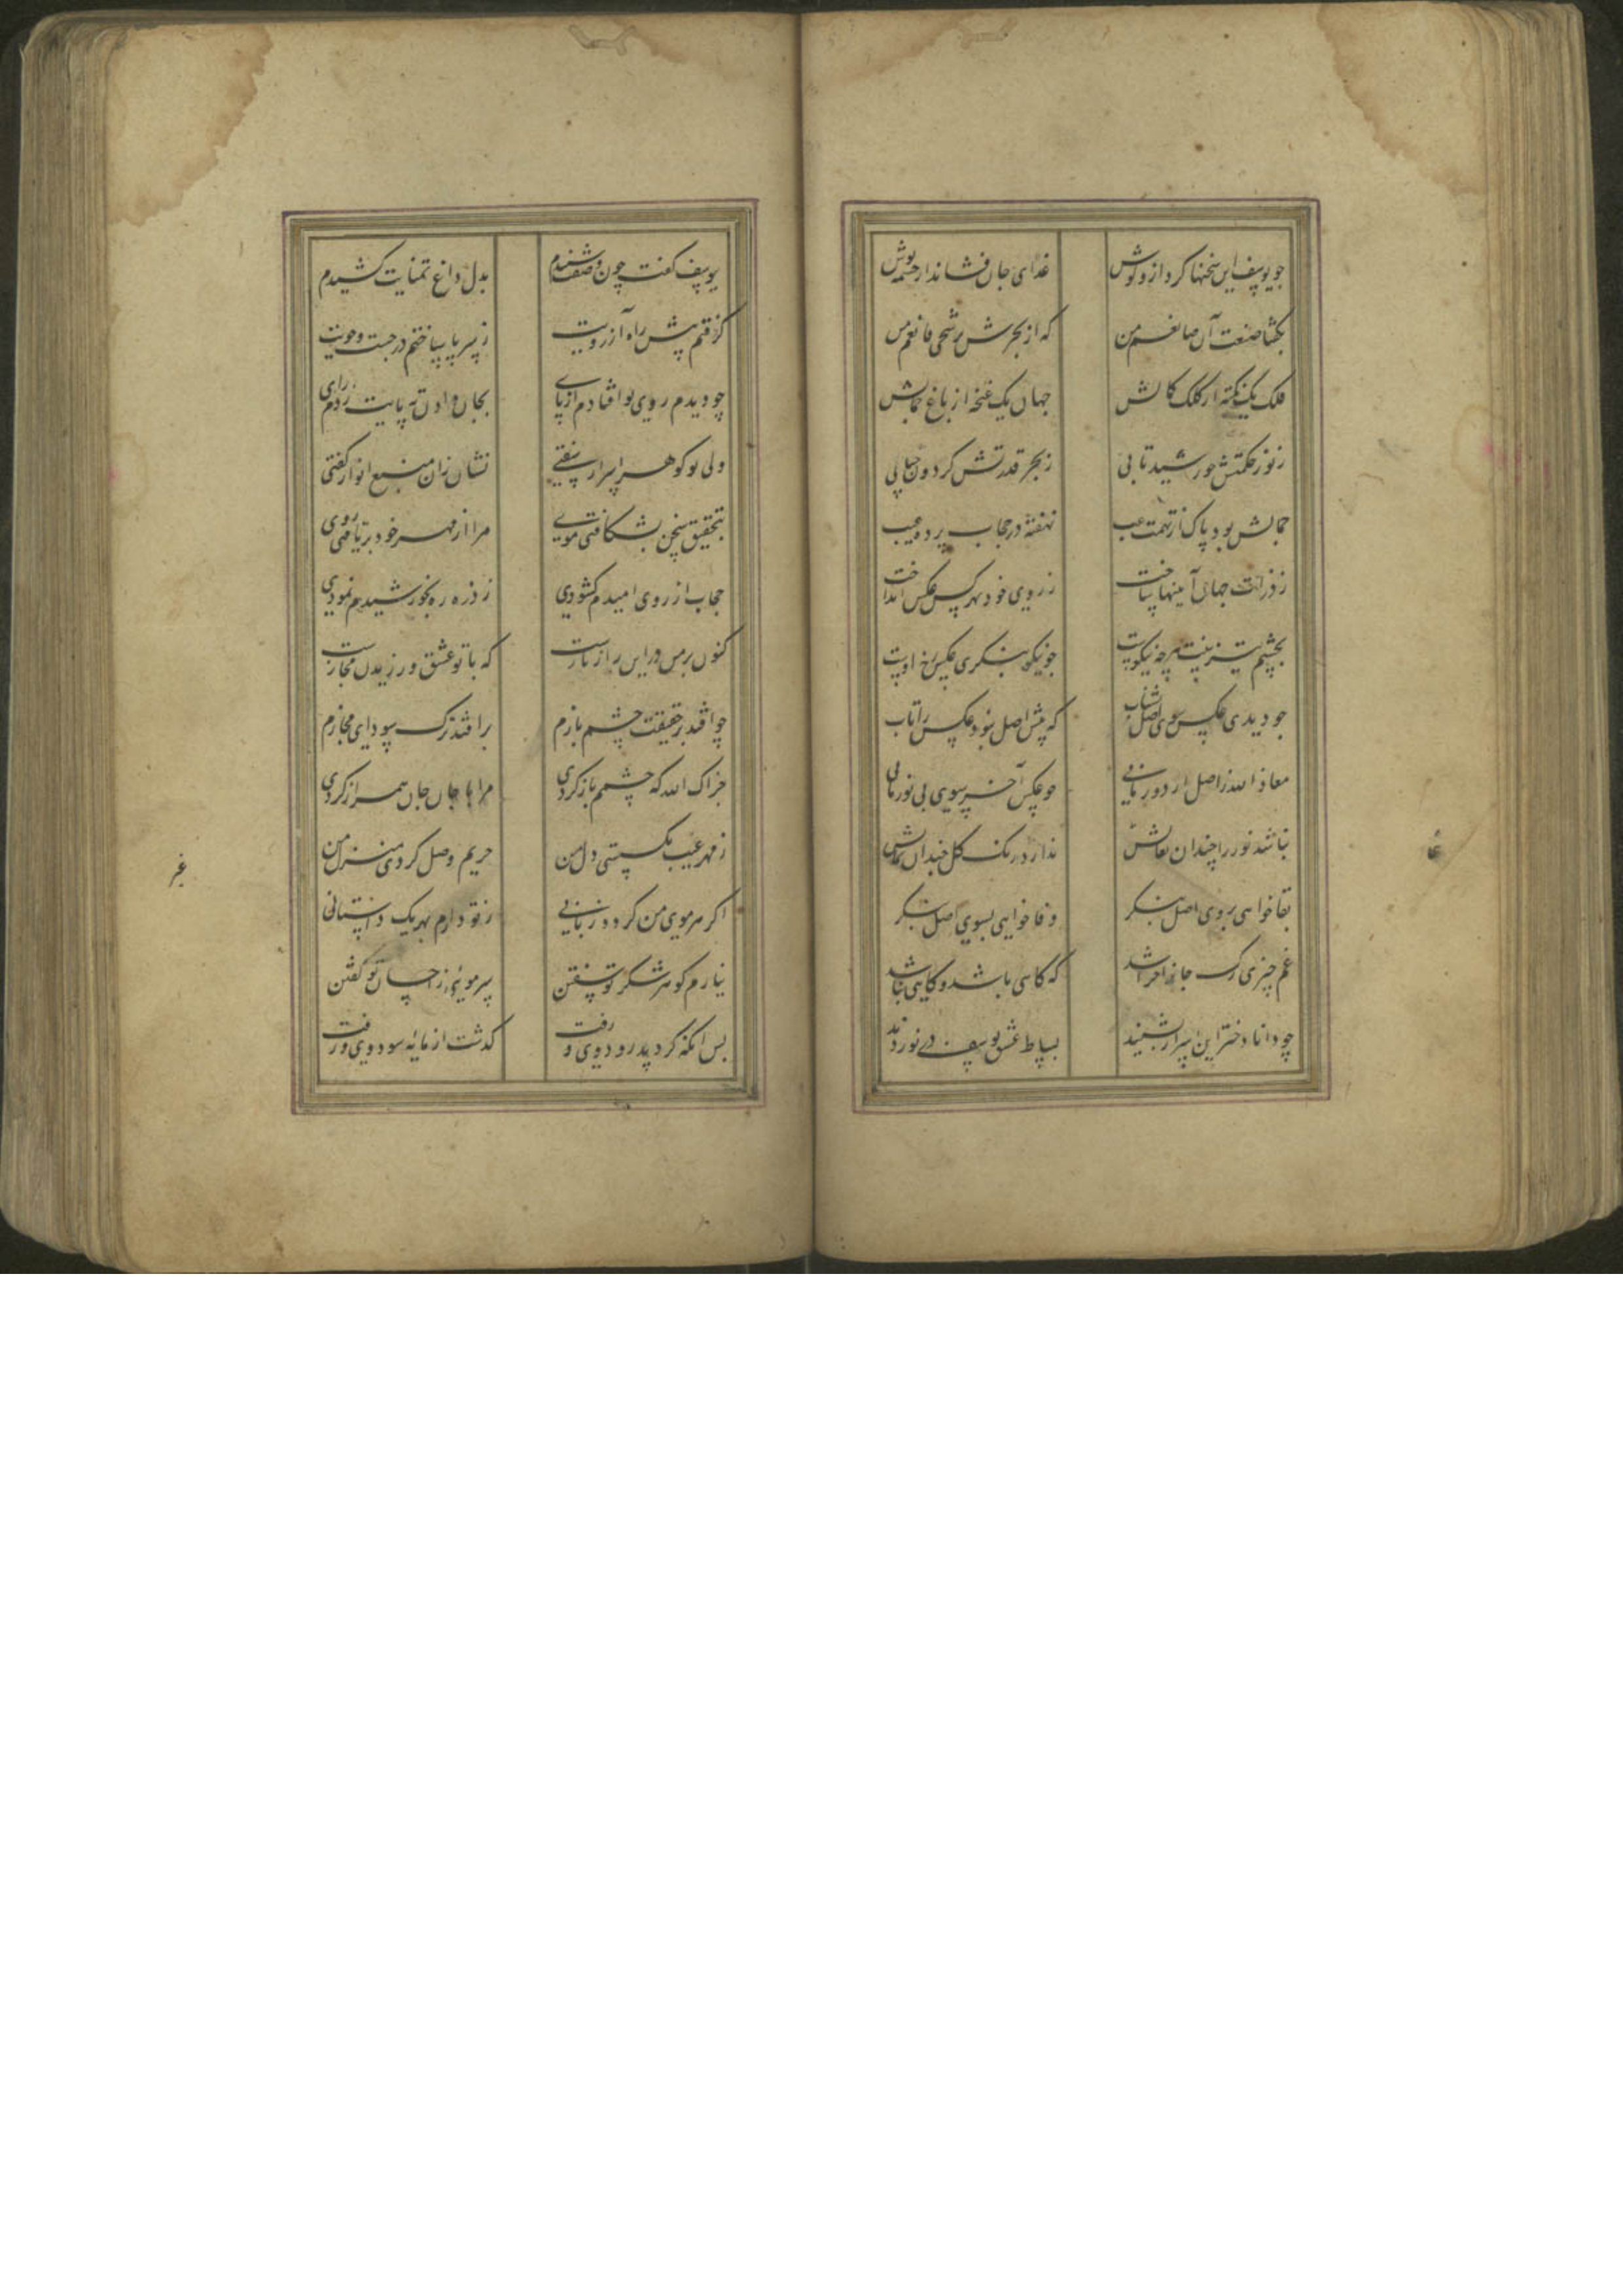 چو یوسف این سخنها کرد ازو گوش
غذای جان فشاند از چشمه نوش
بگفتا صنعت آن صانعم من
که از بحرش برشحی قانعم من
فلک یک نکته از کلک کمالش
جهان یک غنچه از باغ جمالش
ز نور حکمتش خورشید تابی
ز بحر قدرتش گردون حبابی
جمالش بود پاک از تهمت عیب
نهفته در حجاب پرده غیب
ز ذرات جهان آینها ساخت
ز روی خود بهر یک عکس انداخت
بچشم تیزبینت هرچه نیکوست
چو نیکو بنگری عکس رخ اوست
چو دیدی عکس سوی اصل بشتاب
که پیش اصل نبود عکس را تاب
معاذ الله ز اصل ار دور مانی
چو عکس آخر سوی بی نور مانی
نباشد نور را چندان بقاش
ندارد رنگ گل چندان وفاش
بقا خواهی بروی اصل بنگر
وفا خواهی بسوی اصل بنگر
غم چیزی رگ جانرا خراشد
که گاهی باشد و گاهی نباشد
چو دانا دختر این اسرار بشنید
بساط عشق یوسف در نوردید
بیوسف گفت چون وصفت شنیدم
بدل داغ تمنایت کشیدم
گرفتم پیش راه آرزویت
ز سر پا ساختم در جست و جویت
چو دیدم روی تو افتادم از پای
بجان دادن ته پایت زدم رای
ولی تو گوهر اسرار سفتی
نشان زان منبع انوار گفتی
بتحقیق سخن بشکافتی موی
مرا از مهر خود برتافتی روی
حجاب از روی امیدم گشودی
ز ذره ره بخورشیدم نمودی
کنون بر من در این راز بازست
که با تو عشق ورزیدن مجازست
چو افتد بر حقیقت چشم بازم
برافتد ترک سودای مجازم
جزاک الله که چشمم باز کردی
مرا با جان جان همراز کردی
ز مهر غیب بگسستی دل من
حریم وصل کردی منزل من
اگر هر موی من گردد زبانی
ز تو دارم بهر یک داستانی
نیارم گوهر شکر تو سفتن
سر مویی ز احسان تو گفتن
پس آنگه کرد پدرود وی و رفت
گذشت از مایه سود وی و رفت